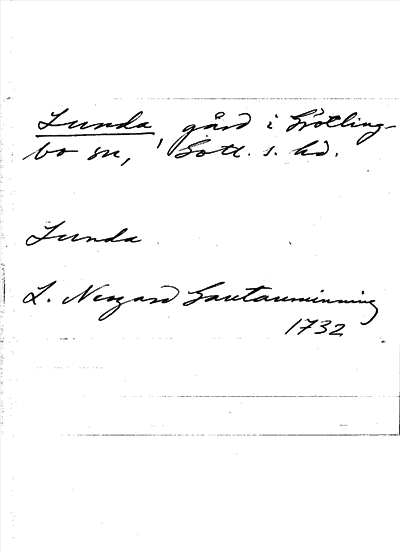 Lunda, gård i Grötling-
bo sn, Gotl. s. hd.
Lunda
L. Neogard Gautauminning
1732